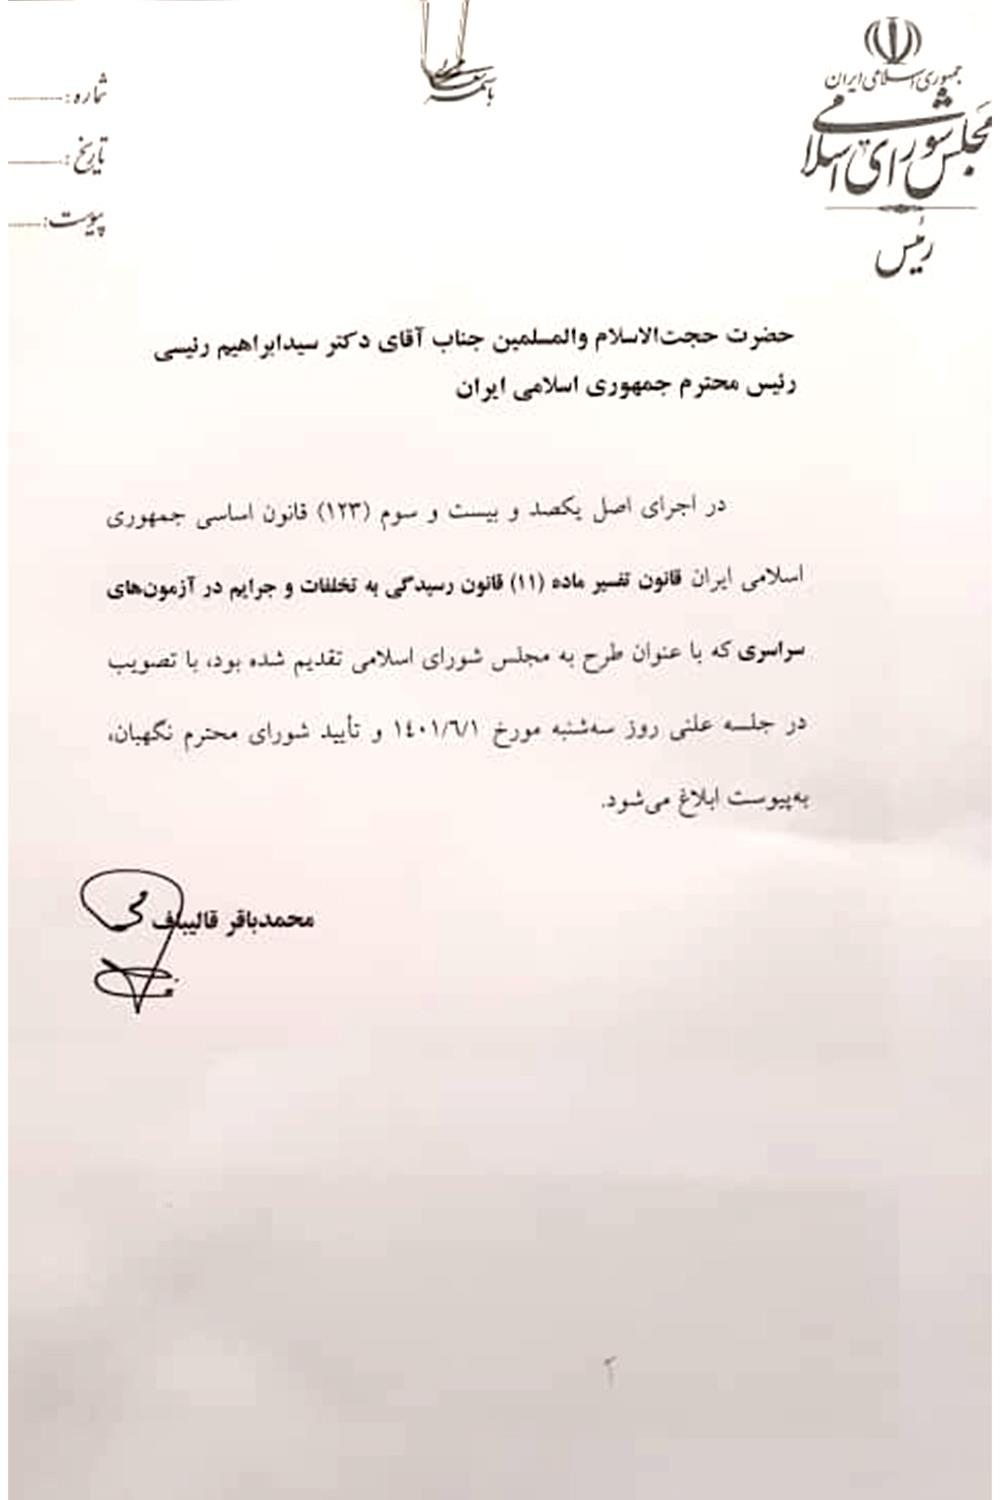 باسمه تعالی
جمهوری اسلامی ایران
مجلس شورای اسلامی
رئیس
شماره:
تاریخ:
پیوست:
حضرت حجت‌الاسلام والمسلمین جناب آقای دکتر سیدابراهیم رئیسی
رئیس محترم جمهوری اسلامی ایران
در اجرای اصل یکصد و بیست و سوم (۱۲۳) قانون اساسی جمهوری
اسلامی ایران قانون تفسیر ماده (۱۱) قانون رسیدگی به تخلفات و جرایم در آزمون‌های
سراسری که با عنوان طرح به مجلس شورای اسلامی تقدیم شده بود، با تصویب
در جلسه علنی روز سه‌شنبه مورخ ۱۴۰۱/۶/۱ و تأیید شورای محترم نگهبان،
به‌پیوست ابلاغ می‌شود.
محمدباقر قالیباف